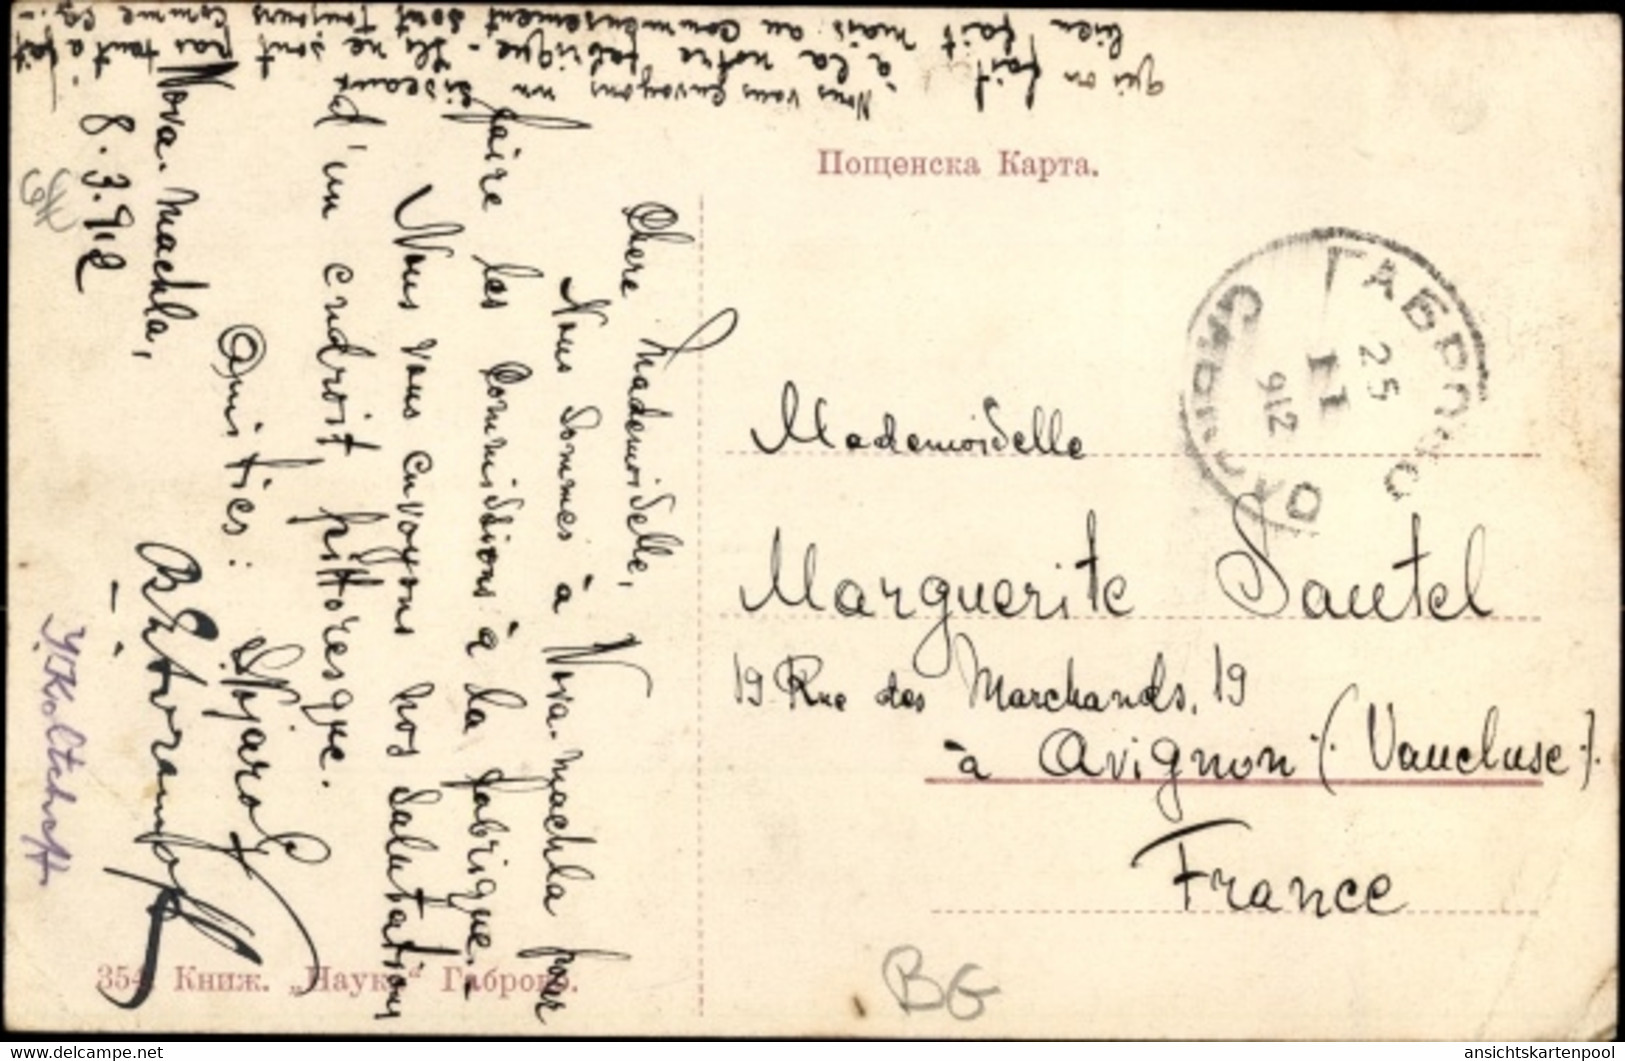 Пощенска Карта.
Chere Mademoiselle,
Nous sommes à Nova-Machla pour
faire les commissions à la fabrique.-
Nous vous envoyons nos salutations
d'un endroit pittoresque.
Amitiés:
Nova-Machla,
8.3.912
Nous vous envoyons un ciseaux
qui on fait à la notre fabrique.- Ils ne sont pas tant a fait
bien fait mais au commensement sont toujours comme ça.-
ГАБРОВО
25
II
912
Mademoiselle
Marguerite Sautel
19 Rue des Marchands, 19
à Avignon (Vaucluse).
France
354. Книж. „Наука“ Габрово.
BG
delcampe.net
ansichtskartenpool